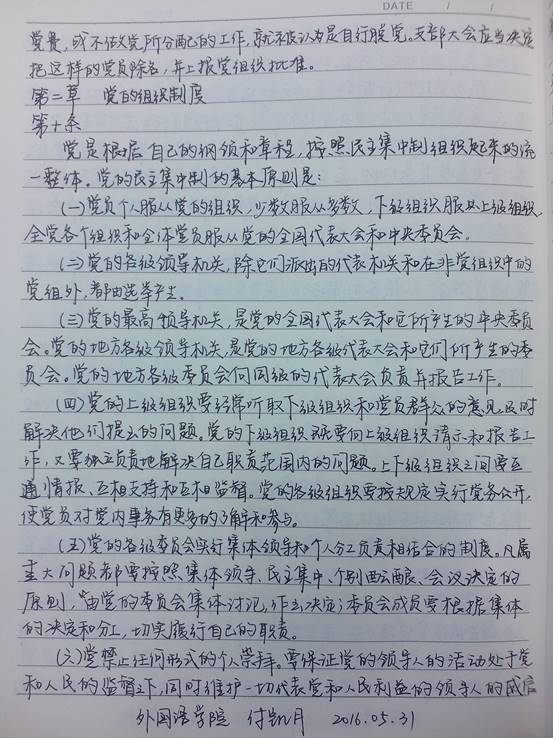 DATE / /
党费,或不做党所分配的工作,就被认为是自行脱党。支部大会应当决定
把这样的党员除名,并上报党组织批准。
第二章 党的组织制度
第十条
党是根据自己的纲领和章程,按照民主集中制组织起来的统
一整体。党的民主集中制的基本原则是:
(一)党员个人服从党的组织,少数服从多数,下级组织服从上级组织,
全党各个组织和全体党员服从党的全国代表大会和中央委员会。
(二)党的各级领导机关,除它们派出的代表机关和在非党组织中的
党组外,都由选举产生。
(三)党的最高领导机关,是党的全国代表大会和它所产生的中央委员
会。党的地方各级领导机关,是党的地方各级代表大会和它们所产生的委
员会。党的地方各级委员会向同级的代表大会负责并报告工作。
(四)党的上级组织要经常听取下级组织和党员群众的意见,及时
解决他们提出的问题。党的下级组织既要向上级组织请示和报告工
作,又要独立负责地解决自己职责范围内的问题。上下级组织之间要互
通情报、互相支持和互相监督。党的各级组织要按规定实行党务公开,
使党员对党内事务有更多的了解和参与。
(五)党的各级委员会实行集体领导和个人分工负责相结合的制度。凡属
重大问题都要按照集体领导、民主集中、个别酝酿、会议决定的
原则,由党的委员会集体讨论,作出决定;委员会成员要根据集体
的决定和分工,切实履行自己的职责。
(六)党禁止任何形式的个人崇拜。要保证党的领导人的活动处于党
和人民的监督之下,同时维护一切代表党和人民利益的领导人的威信
外国语学院 付凯月 2016.05.31